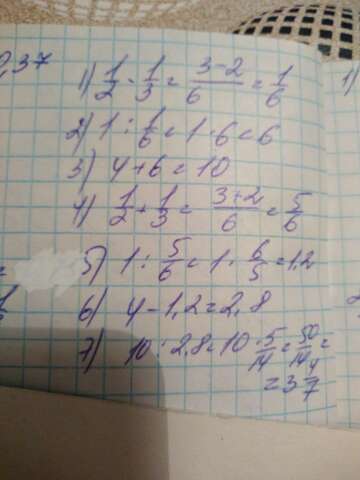 0,37
1) 1/2 - 1/3 = (3-2)/6 = 1/6
2) 1 : 1/6 = 1 · 6 = 6
3) 4 + 6 = 10
4) 1/2 + 1/3 = (3+2)/6 = 5/6
5) 1 : 5/6 = 1 · 6/5 = 1,2
6) 4 - 1,2 = 2,8
7) 10 : 2,8 = 10 · 5/14 = 50/14 =
= 3 4/7
1)